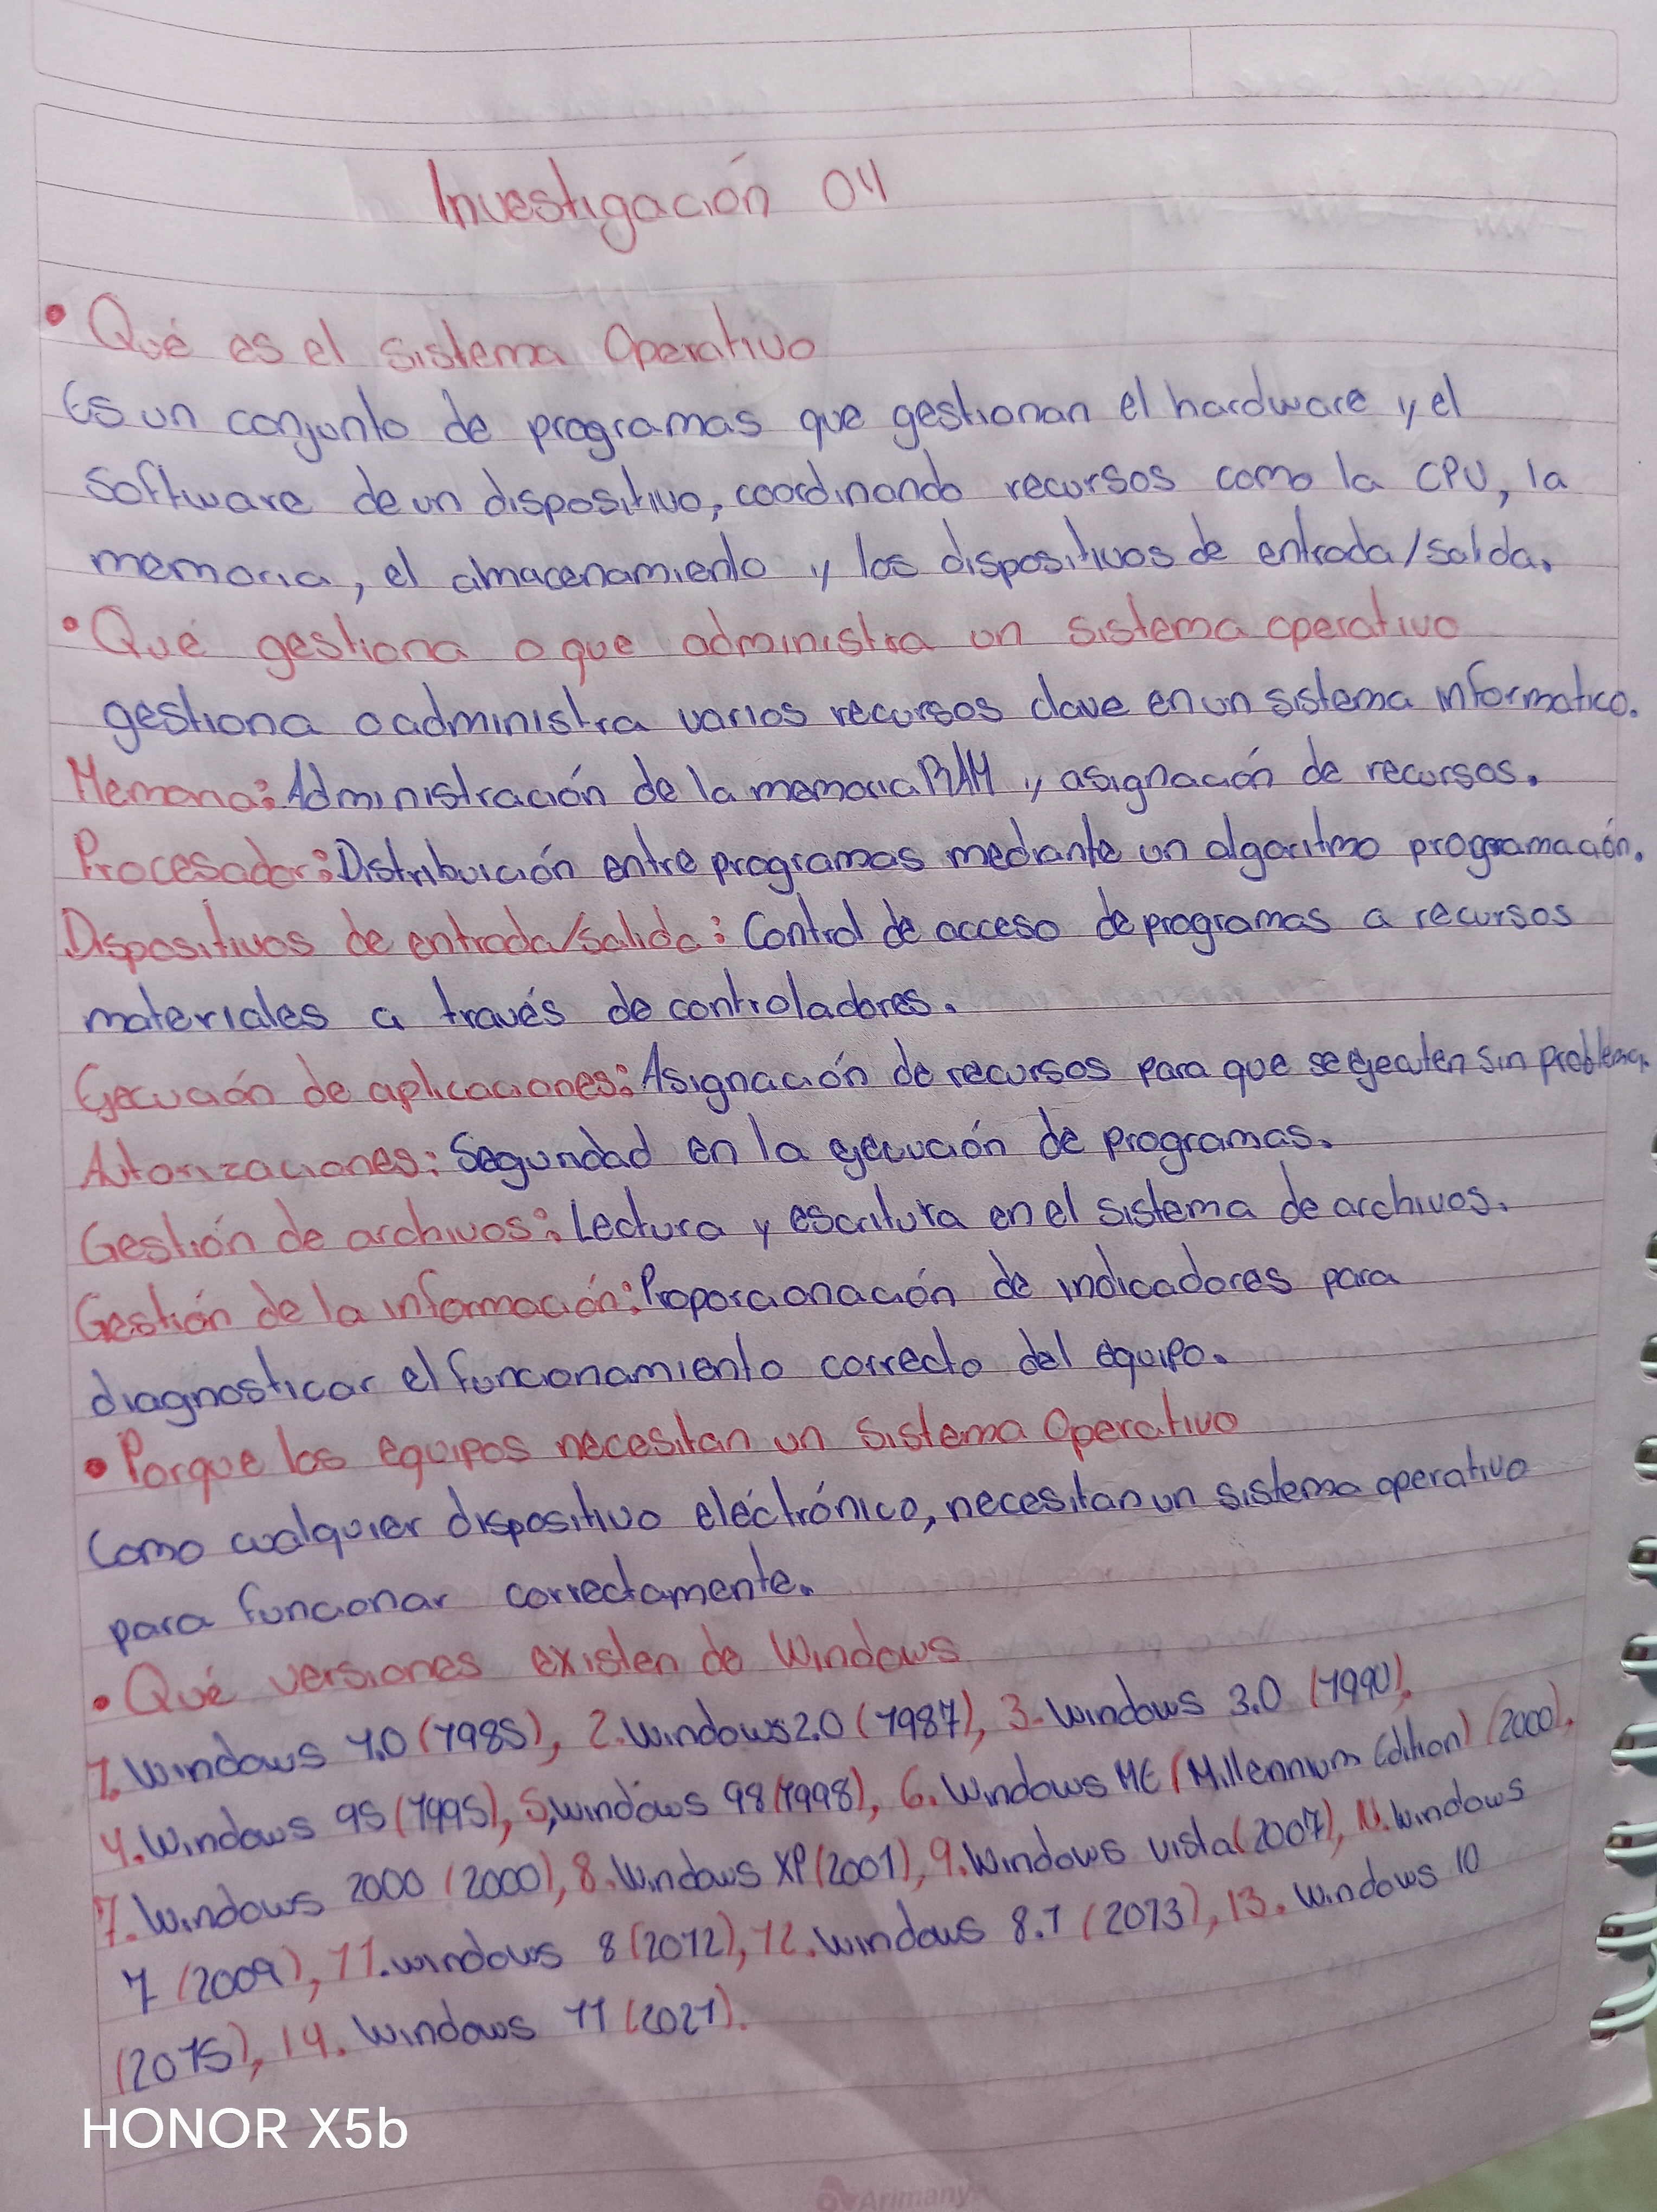 Investigación 04
• Qué es el sistema Operativo
Es un conjunto de programas que gestionan el hardware y el
software de un dispositivo, coordinando recursos como la CPU, la
memoria, el almacenamiento y los dispositivos de entrada/salda.
• Qué gestiona o que administra un sistema operativo
gestiona o administra varios recursos clave en un sistema informatico.
Memoria: Administración de la memoria RAM y asignación de recursos.
Procesador: Distribuición entre programas mediante un algoritmo programación.
Dispositivos de entrada/salida: Control de acceso de programas a recursos
materiales a través de controladores.
Ejecución de aplicaciones: Asignación de recursos para que se ejecuten sin problema.
Autorizaciones: Seguridad en la ejecución de programas.
Gestión de archivos: Lectura y escritura en el sistema de archivos.
Gestión de la información: Proporcionación de indicadores para
diagnosticar el funcionamiento correcto del equipo.
• Porque los equipos necesitan un Sistema Operativo
Como cualquier dispositivo eléctrónico, necesitan un sistema operativo
para funcionar correctamente.
• Qué versiones existen de Windows
1. Windows 1.0 (1985), 2. Windows 2.0 (1987), 3. Windows 3.0 (1990),
4. Windows 95 (1995), 5, windows 98 (1998), 6. Windows ME (Millennium Edition) (2000),
7. Windows 2000 (2000), 8. Windows XP (2001), 9. Windows vista (2007), 10. Windows
7 (2009), 11. windows 8 (2012), 12. windows 8.1 (2013), 13. Windows 10
(2015), 14. Windows 11 (2021).
HONOR X5b
Arimany